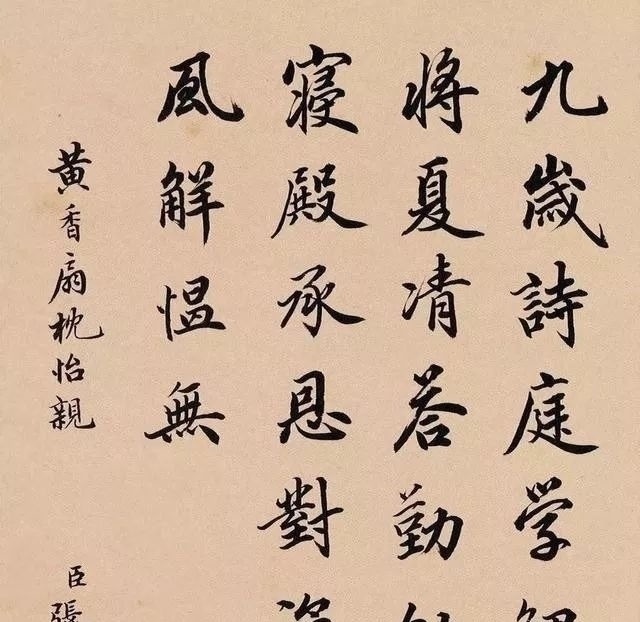 九歲詩庭学
将夏凊荅勤
寢殿承恩對
風解愠無
黄香扇枕怡親
臣張